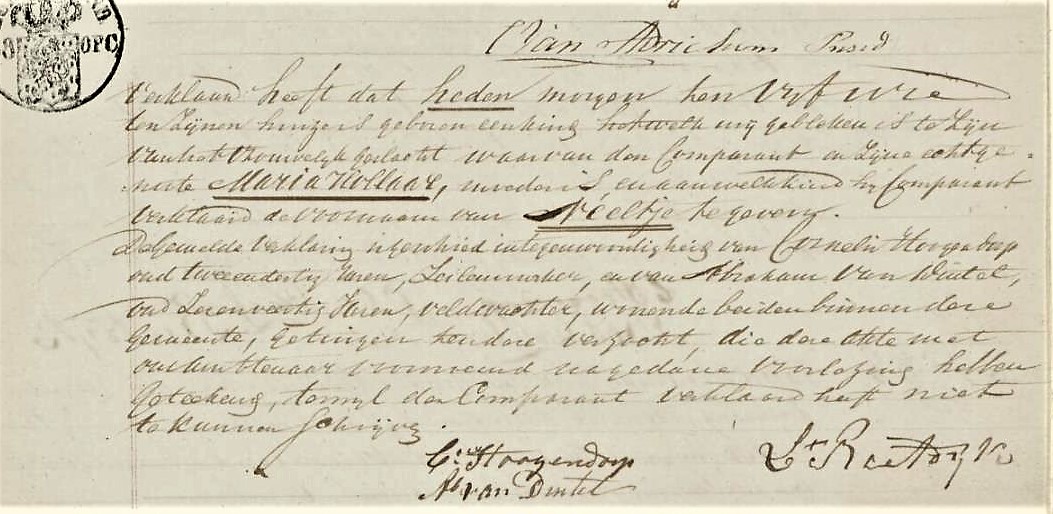 OPC
Van Adrichem Ruard
verklaard heeft dat heden morgen ten vyf ure
ten zijnen huize is geboren een kind hetwelk mij gebleken is te zijn
van het vrouwelijk geslacht waarvan den Comparant en zijne echtge-
note Maria Hollaar, moeder is, en aan welk kind hij Comparant
verklaard de voornaam van Neeltje te geven.
De gemelde verklaring is geschied in tegenwoordigheid van Cornelis Hoogendorp
oud twee en dertig Jaren, Zeilenmaker, en van Abraham van Dintel,
oud Zes en veertig Jaren, veldwachter, wonende beiden binnen deze
Gemeente, getuigen ten deze verzocht, die deze akte met
ons Ambtenaar voornoemd na gedane voorlezing hebben
geteekend, terwyl den Comparant verklaard heeft niet
te kunnen schrijven.
C. Hoogendorp
Ab van Dintel